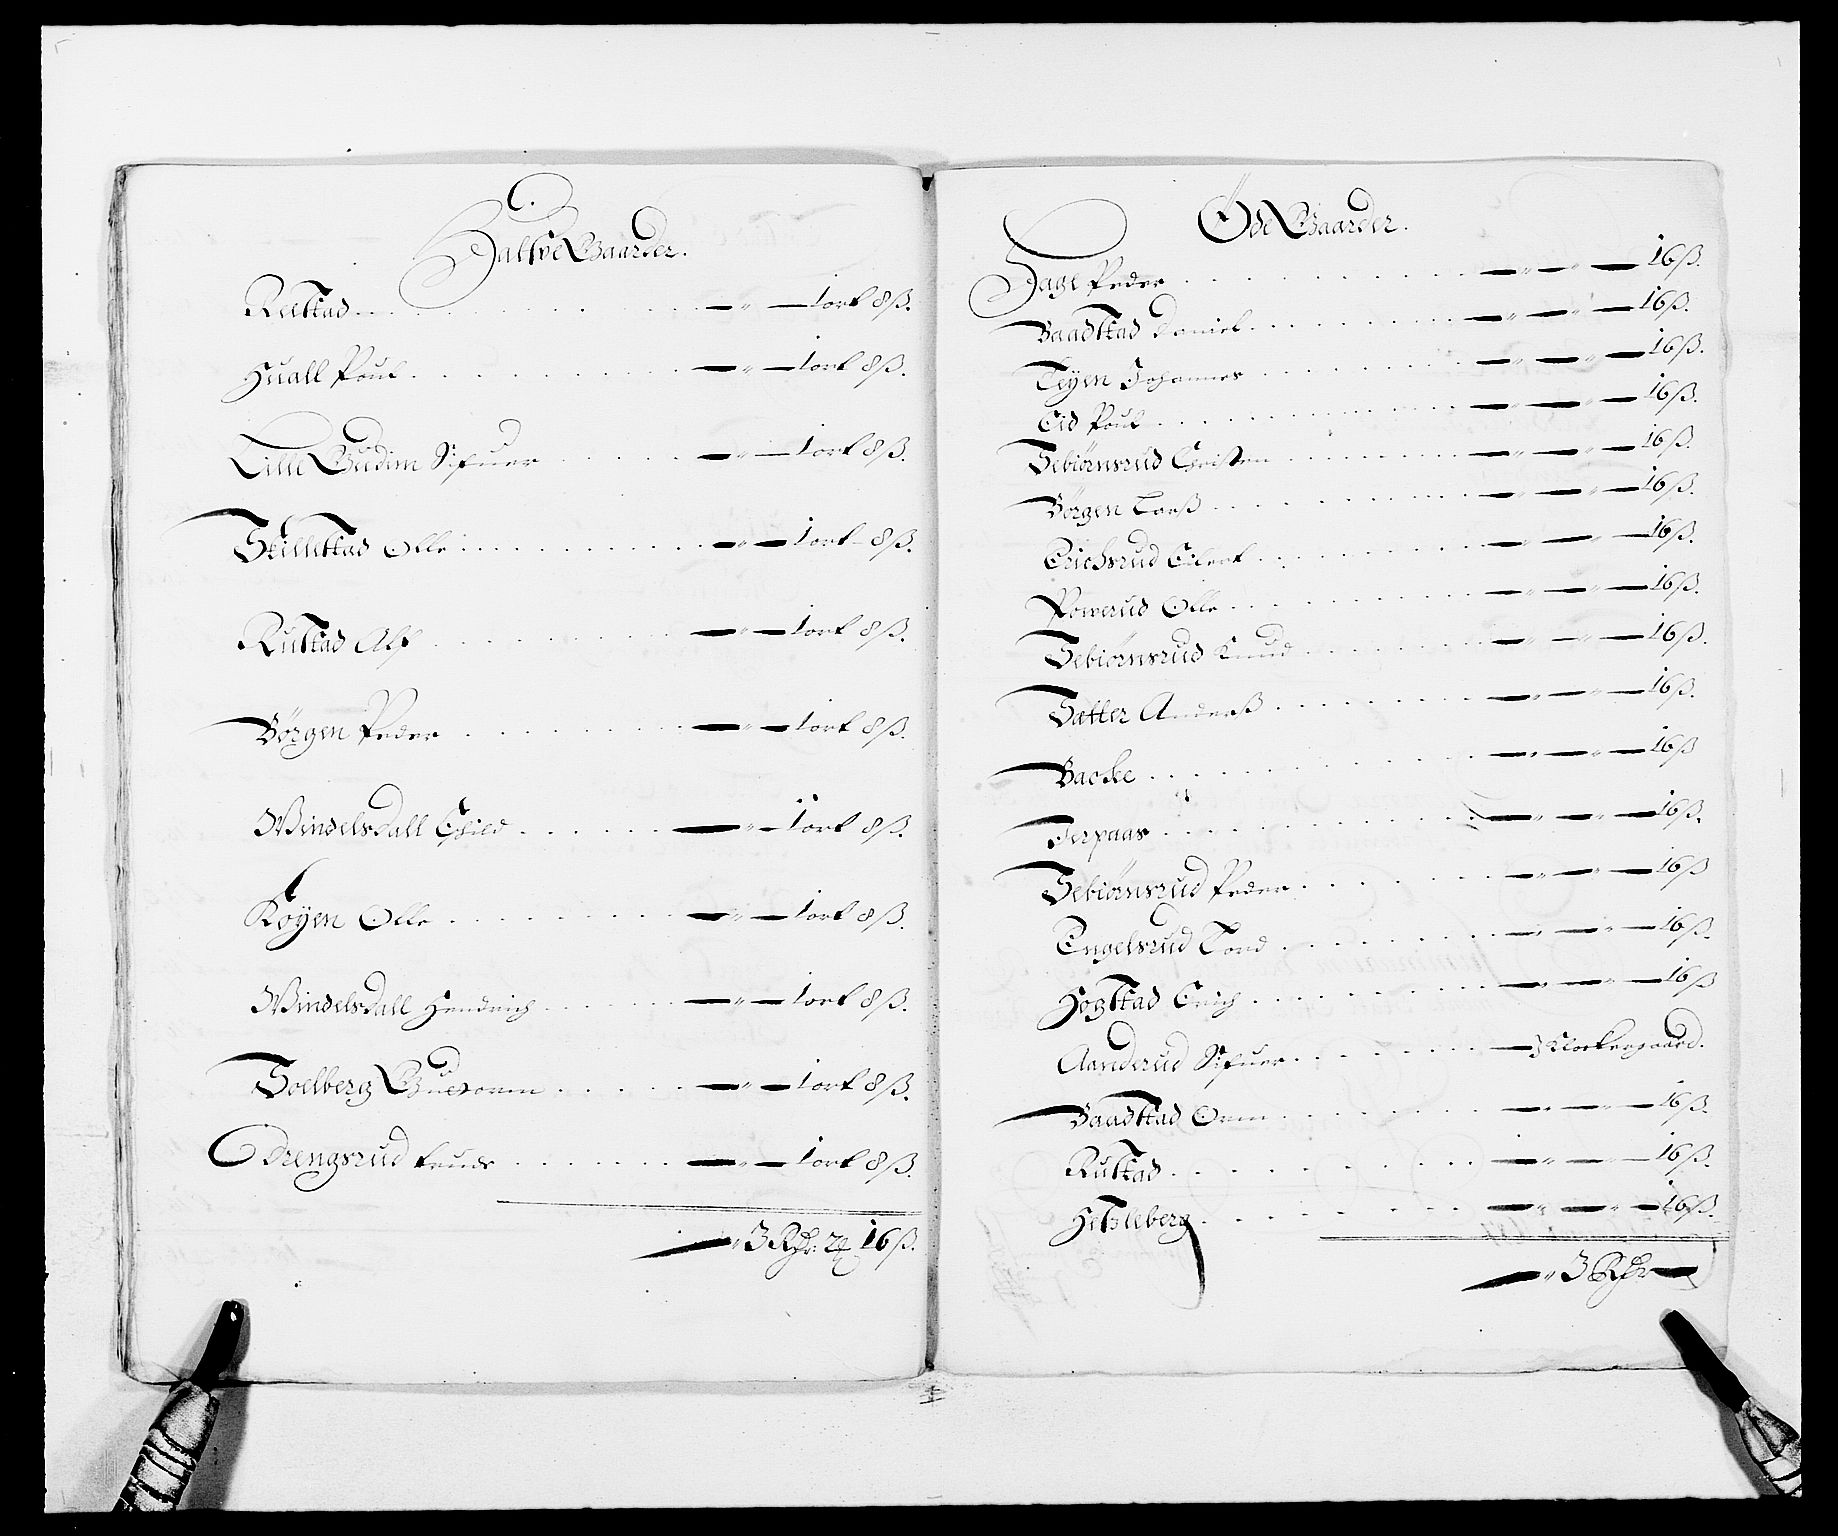 Halfve Gaarder.
Relstad — " — 1 ort 8 ß.
Huall Poul — " — 1 ort 8 ß.
Lille Gudim Sifuer — " — 1 ort 8 ß.
Skillestad Olle — " — 1 ort 8 ß.
Rustad Alf — " — 1 ort 8 ß.
Børgen Peder — " — 1 ort 8 ß.
Windelsdall Eskild — " — 1 ort 8 ß.
Køyen Olle — " — 1 ort 8 ß.
Windelsdall Hendrich — " — 1 ort 8 ß.
Solberg Guttorm — " — 1 ort 8 ß.
Drengsrud — " — 1 ort 8 ß.
— " 3 Rdr. 2 16 ß.
Øde Gaarder.
Hage Peder — " — " — 16 ß.
Baadstad Daniel — " — " — 16 ß.
Teyen Johannes — " — " — 16 ß.
Eid Poul — " — " — 16 ß.
Sebiørnsrud Christen — " — " — 16 ß.
Børgen Larß — " — " — 16 ß.
Erichsrud Eilert — " — " — 16 ß.
Powerud Olle — " — " — 16 ß.
Sebiørnsrud Knud — " — " — 16 ß.
Sætter Anderß — " — " — 16 ß.
Backe — " — " — 16 ß
Jerpaas — " — " — 16 ß.
Sebiørnsrud Peder — " — " — 16 ß
Engelsrud Tord — " — " — 16 ß.
Hogstad Erich — " — " — 16 ß
Aanderud Sifuer — Klockergaard.
Baadstad Orm — " — " — 16 ß.
Rustad — " — " — 16 ß.
Hetzleberg — " — " — 16 ß.
— " 3 Rdr —